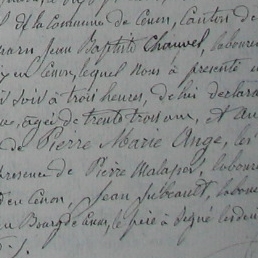 de la Commune de Cenon, Canton de
Jean Baptiste Chauvel, laboureur
Cenon, lequel nous a présenté un
soir à trois heures, de lui déclarant
agée de trente trois ans, et au
de Pierre Marie Ange, les
présence de Pierre Malapos, labou
en Cenon, Jean Thébeault, labou
Bourg de Cenon, le père a signé les deux